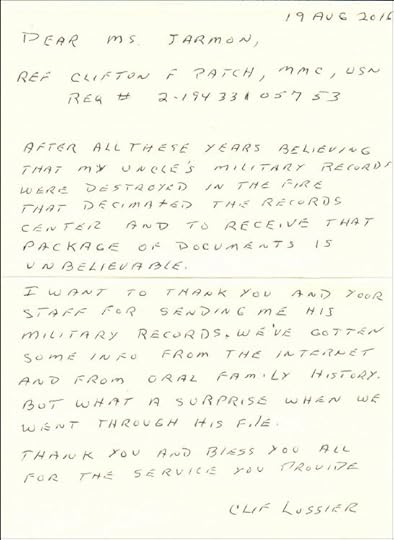 19 AUG 2016
DEAR MS. JARMON,
REF CLIFTON F PATCH, MMC, USN
REQ # 2-19433105753
AFTER ALL THESE YEARS BELIEVING
THAT MY UNCLE'S MILITARY RECORDS
WERE DESTROYED IN THE FIRE
THAT DECIMATED THE RECORDS
CENTER AND TO RECEIVE THAT
PACKAGE OF DOCUMENTS IS
UNBELIEVABLE.
I WANT TO THANK YOU AND YOUR
STAFF FOR SENDING ME HIS
MILITARY RECORDS. WE'VE GOTTEN
SOME INFO FROM THE INTERNET
AND FROM ORAL FAMILY HISTORY.
BUT WHAT A SURPRISE WHEN WE
WENT THROUGH HIS FILE.
THANK YOU AND BLESS YOU ALL
FOR THE SERVICE YOU PROVIDE
CLIF LUSSIER